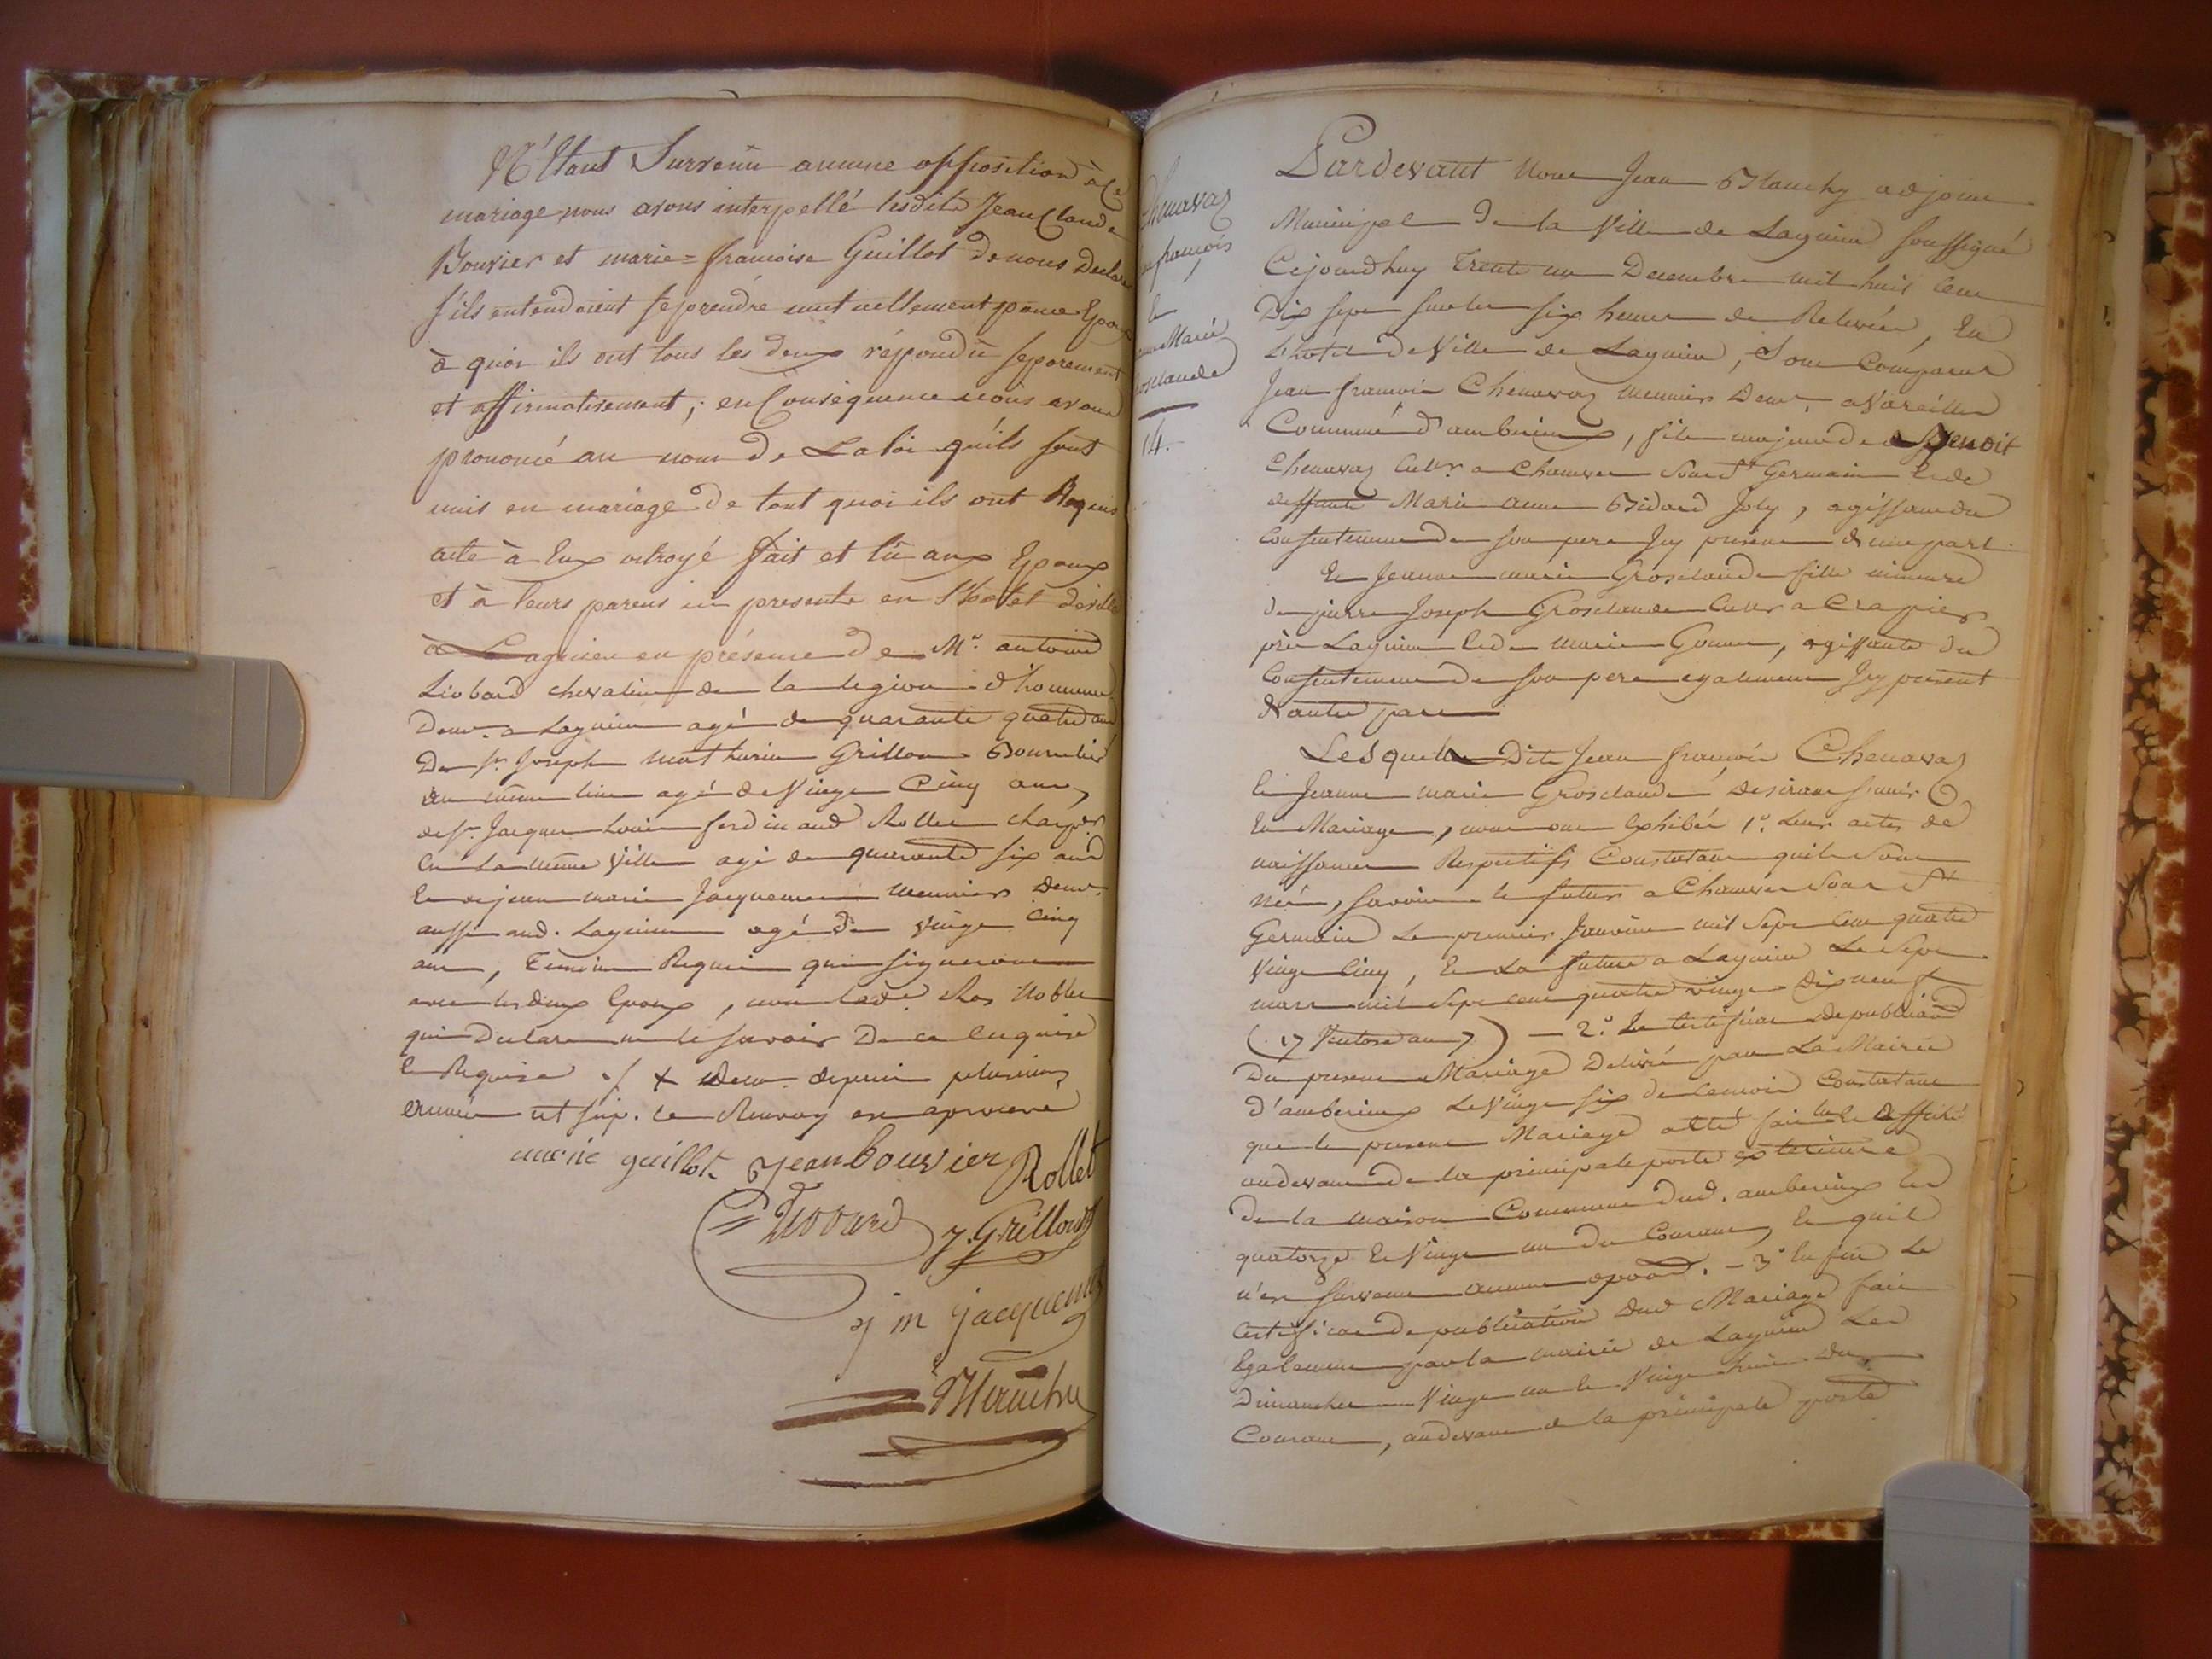 N'Etant Survenu aucune opposition à Ce
mariage nous avons interpellé lesdits Jean Claude
Bouvier et marie=francoise Guillot de nous Declarer
s'ils entendoient se prendre mutuellement pour Epoux
à quoi ils ont tous les deux répondu séparement
et affirmativement ; en Conséquence nous avons
prononcé au nom de La loi qu'ils sont
unis en mariage de tout quoi ils ont Requis
acte à Eux octroyé fait et lû aux Epoux
et à leurs parens ici presents en l'hotel de ville
à Lagnieu en présence de Mr. antoine
Liobard chevalier de la legion d'honneur
Demt. a Lagnieu agé de quarante quatre ans
De sr. Joseph mathurin Grillon Bourrelier
du même lieu agé de Vingt Cinq ans,
de sr. Jacques Louis ferdinand Rollet charpr.
En La même Ville agé de quarante six ans
Et de jean marie Jacquemet meunier demt.
aussi aud. Lagnieu agé de vingt Cinq
ans, Temoins Requis qui signeront
avec lesdeux Epoux,
qui Declare ne le savoir De ce Enquise
Et Requise ./. + Demt. depuis plusieurs
années ut sup. le Renvoy est aprouvé
marie guillot jean bouvier Rollet
Liobard J. Grillon
j m jacquemet
Chenavaz
jean françois
Et
jeanne Marie
Grosclaude
14.
Pardevant Nous Jean Blanchy adjoint
Municipal De la Ville de Lagnieu soussigné
Cejourdhuy Trente un Decembre mil huit Cent
Dix sept sur les six heures de Relevée, En
L'hotel de Ville de Lagnieu, Sont Comparus
Jean francois Chenavaz meunier Demt. a Vareilles
Commune d'amberieux, fils majeur de Benoit
Chenavaz Cultr. a Chauvet Sous St Germain Et de
deffunte Marie anne Bidard Joly, agissant du
Consentement de son pere Icy present d'une part
Et Jeanne marie Grosclaude fille mineure
de pierre Joseph Grosclaude Cultr a Crapier
près Lagnieu Et de marie Gonnet, agissante du
Consentement De son pere egalement Icy present
d'autre part
Lesquels Dits Jean françois Chenavaz
Et Jeanne marie Grosclaude desirant s'unir
En Mariage, nous ont Exhibé 1°. Leurs actes de
naissance Respectifs Constatant qu'ils Sont
Nés, savoir le futur a Chauvet Sous St
Germain Le premier Janvier mil Sept Cent quatre
Vingt Cinq, Et La future a Lagnieu Le Sept
mars mil sept cent quatre vingt Dix neuf
(17 Ventose an 7) — 2°. Le Certificat de publication
Du present Mariage Delivré par La Mairie
d'amberieux Le Vingt six de ce mois Constatant
que le present Mariage a été lu et affiché
audevant de la principale porte exterieure
de la maison Commune dud. amberieux Les
quatorze Et Vingt un du Courant, Et qu'il
n'est survenu aucune oppoon. — 3° Enfin Le
Certificat de publication dud Mariage fait
Egalement par la mairie de Lagnieu Les
Dimanches Vingt un Et Vingt huit du
Courant, audevant de la principale porte